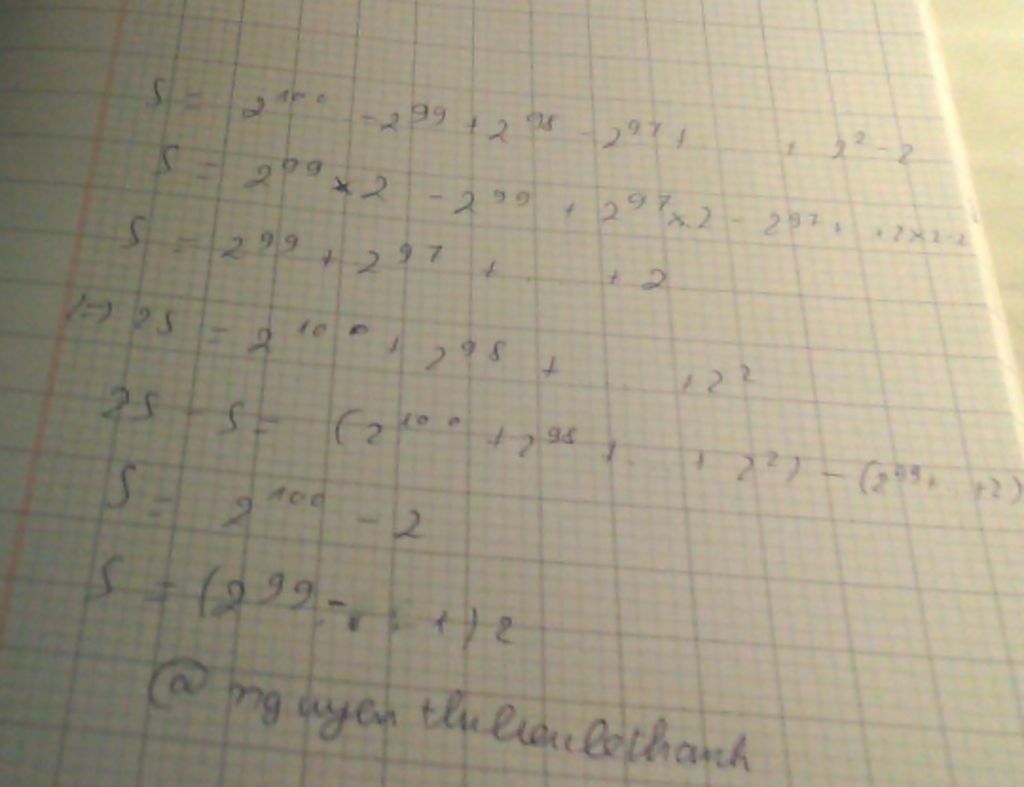 S = 2^100 - 2^99 + 2^98 - 2^97 + ... + 2^2 - 2
S = 2^99 × 2 - 2^99 + 2^97 × 2 - 2^97 + ... + 2 × 2 - 2
S = 2^99 + 2^97 + ... + 2
(=) 2S = 2^100 + 2^98 + ... + 2^2
2S - S = (2^100 + 2^98 + ... + 2^2) - (2^99 + ... + 2)
S = 2^100 - 2
S = (2^99 - 1) 2
@ nguyen